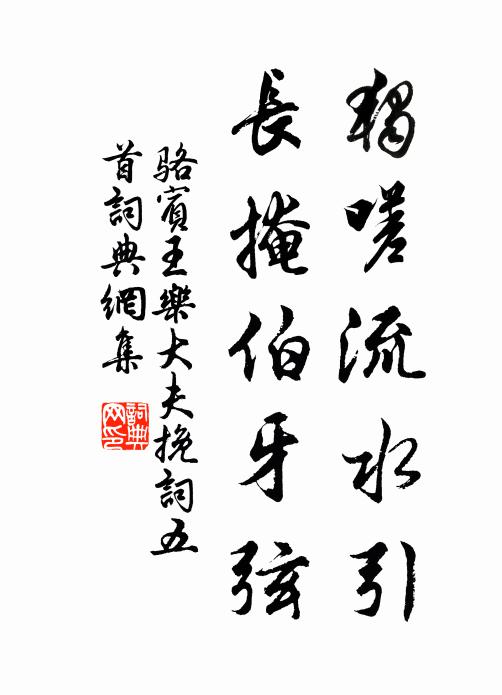 獨嗟流水引
長掩伯牙弦
駱賓王樂大夫挽詞五
首詞典網集
詞典
网印